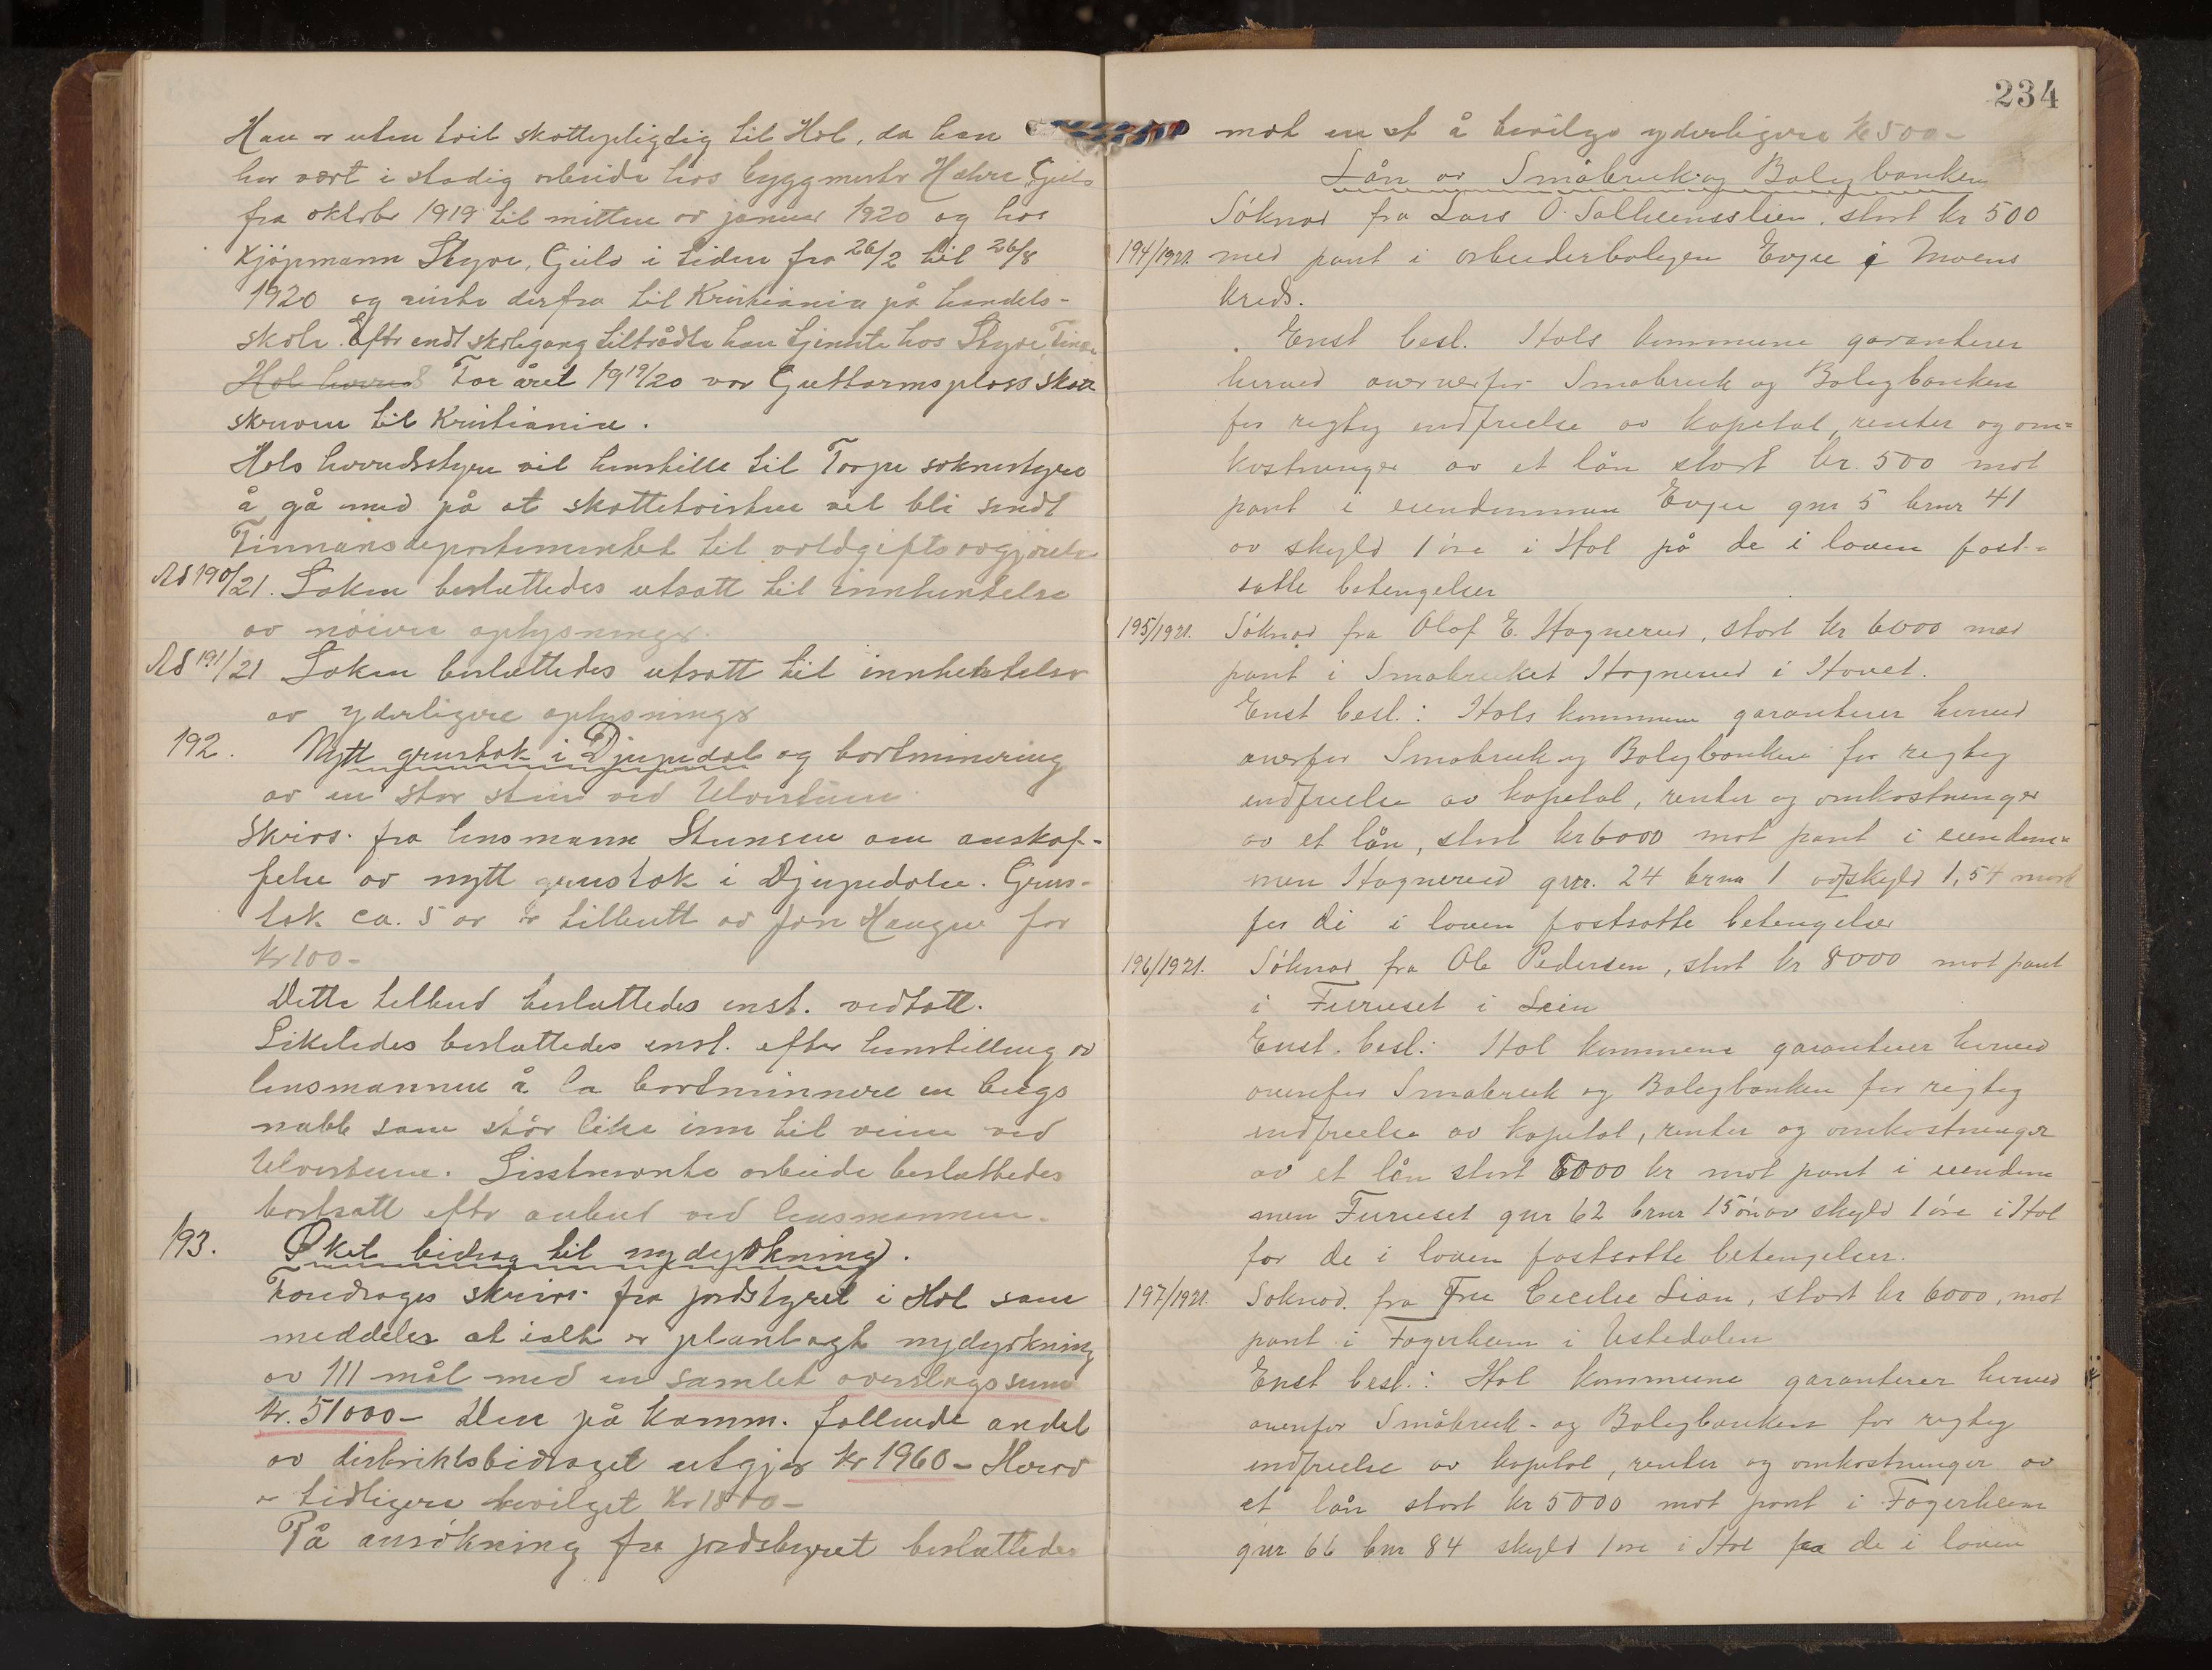 Han er uten tvil skattepligtig til Hol, da han
har vært i stadig arbeide hos byggmester Hæhre, Geilo
fra oktober 1919 til mitten av januar 1920 og hos
kjøpmann Skyve, Geilo i tiden fra 26/2 til 26/8
1920 og reiste derfra til Kristiania på handels-
skole. Efter endt skolegang tiltrådte han tjeneste hos Skyve
For året 1919/20 var Guttormsplass skatt
skreven til Kristiania.
Hols heredsstyre vil henstille til Torpe soknestyre
å gå med på at skattetvisten vil bli sendt
Finnansdepartementet til voldgiftsavgjørelse
Ad 190/21. Saken besluttedes utsatt til innhentelse
av nøiere oplysninger.
Ad 191/21 Saken besluttedes utsatt til innhentelse
av yderligere oplysninger
192. Nytt grustak i Djupedal og bortminering
av en stor stein ved Ulvesteine
Skriv. fra lensmann Stensen om anskaf-
felse av nytt grustak i Djupedalen. Grus-
tak ca. 5 ar er tilbutt av Jon Haugen for
Kr 100-
Dette tilbud besluttedes enst. vedtatt.
Likeledes besluttedes enst. efter henstilling av
lensmannen å la bortminnere en bergs
nabb som står like inn til veien ved
Ulvesteine. Sisstnevnte arbeide besluttedes
bortsatt efter anbud ved lensmannen.
193. Øket bidrag til nydyrkning.
Foredrages skriv. fra jordstyret i Hol som
meddeler at ialt er planlagt nydyrkning
av 111 mål med en samlet overslagssum
Kr. 51000- Den på komm. fallende andel
av distriktsbidraget utgjør kr 1960- Herav
er tidligere bevilget Kr 1800-
På ansøkning fra jordstyret besluttedes
234
mot en st å bevilge yderligere Kr 500-
Lån av Småbruk og Boligbanken
Søknad fra Lars O. Solheimslien, stort kr 500
194/1921. med pant i arbeiderboligen Evju i Moens
kreds.
Enst besl. Hols kommune garanterer
herved overfor Småbruk og Boligbanken
for rigtig indfrielse av kapital, renter og om=
kostninger av et lån stort kr. 500 mot
pant i eiendommen Evju gnr 5 brnr 41
av skyld 1 øre i Hol på de i loven fast-
satte betengelser
195/1921. Søknad fra Olaf E. Hagnerud, stort kr 6000 mod
pant i Smabruket Hagnerud i Hovet.
Enst besl.: Hols kommune garanterer herved
overfor Smabruk og Boligbanken for rigtig
indfrielse av kapital, renter og omkostninger
av et lån, stort kr 6000 mot pant i eiendom-
men Hagnerud gnr. 24 brnr 1 av skyld 1,54 mark
for de i loven fastsatte betengelser
196/1921. Søknad fra Ole Pedersen, stort kr 8000 mot pant
i Furuset i Lein
Enst. besl.: Hol kommune garanterer herved
overfor Smabruk og Boligbanken for rigtig
indfrielse av kapital, renter og omkostninger
av et lån stort 6000 kr mot pant i eiendom
men Furuset gnr 62 brnr 15 av skyld 1 øre i Hol
for de i loven fastsatte betengelser.
197/1921. Søknad fra Fru Cecilie Lian, stort kr 6000, mot
pant i Fagerheim i Ustedalen
Enst besl.: Hol kommune garanterer herved
overfor Småbruk- og Boligbanken for rigtig
indfrielse av kapital, renter og omkostninger av
et lån stort kr 5000 mot pant i Fagerheim
gnr 66 bnr 84 skyld 1 øre i Hol paa de i loven